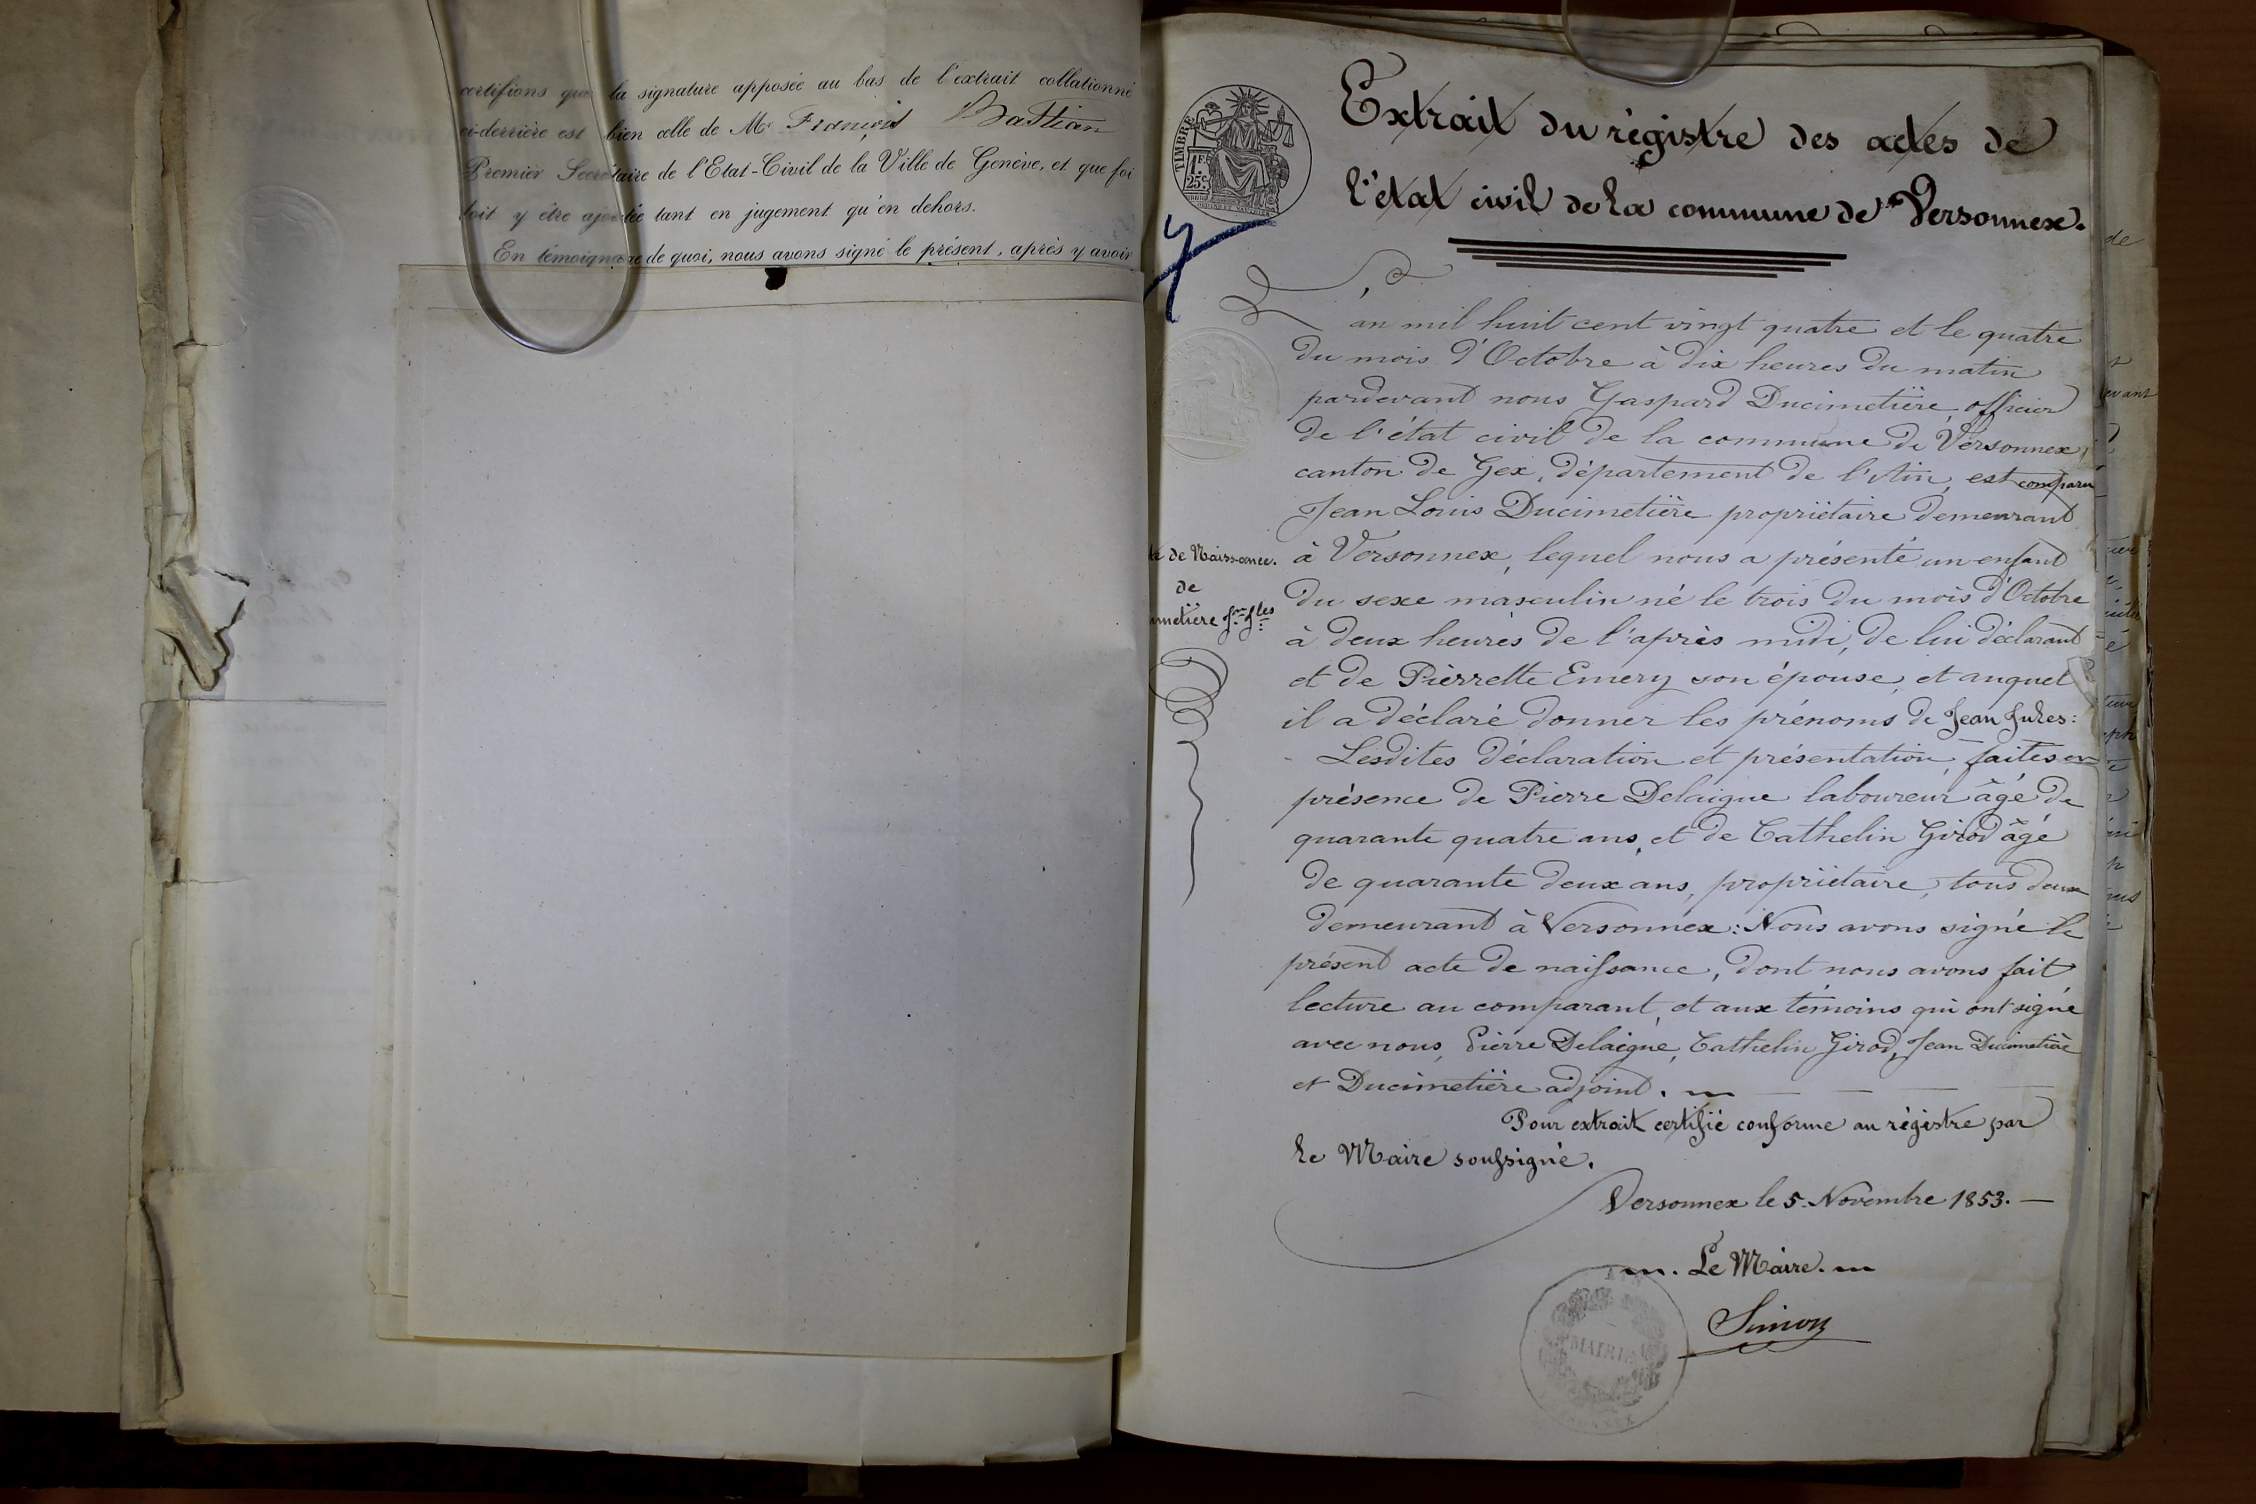 certifions que la signature apposée au bas de l'extrait collationné
ci-derrière est bien celle de Mr François Bastian
Premier Secrétaire de l'Etat-Civil de la Ville de Genève, et que foi
doit y être ajoutée tant en jugement qu'en dehors.
En témoignage de quoi, nous avons signé le présent, après y avoir
TIMBRE
1 F.
25 c.
Extrait du règistre des actes de
l'état civil de la commune de Versonnex.
L'an mil huit cent vingt quatre et le quatre
du mois d'Octobre à dix heures du matin
pardevant nous Gaspard Ducimetière, officier
de l'état civil de la commune de Versonnex,
canton de Gex, département de l'Ain, est comparu
Jean Louis Ducimetière propriétaire demeurant
à Versonnex, lequel nous a présenté un enfant
du sexe masculin né le trois du mois d'Octobre
à deux heures de l'après midi, de lui déclarant
et de Pierrette Emery son épouse, et auquel
il a déclaré donner les prénoms de Jean Jules:
Lesdites déclaration et présentation, faites en
présence de Pierre Delaigue laboureur âgé de
quarante quatre ans, et de Cathelin Girod âgé
de quarante deux ans, propriétaire, tous deux
demeurant à Versonnex: Nous avons signé le
présent acte de naissance, dont nous avons fait
lecture au comparant, et aux témoins qui ont signé
avec nous, Pierre Delaigue, Cathelin Girod, Jean Ducimetière
et Ducimetière adjoint.
te de Naissance.
de
imetière Jn Jles
Pour extrait certifié conforme au règistre par
Le Maire soussigné.
Versonnex le 5 Novembre 1853.
Le Maire.
Simon
MAIRIE